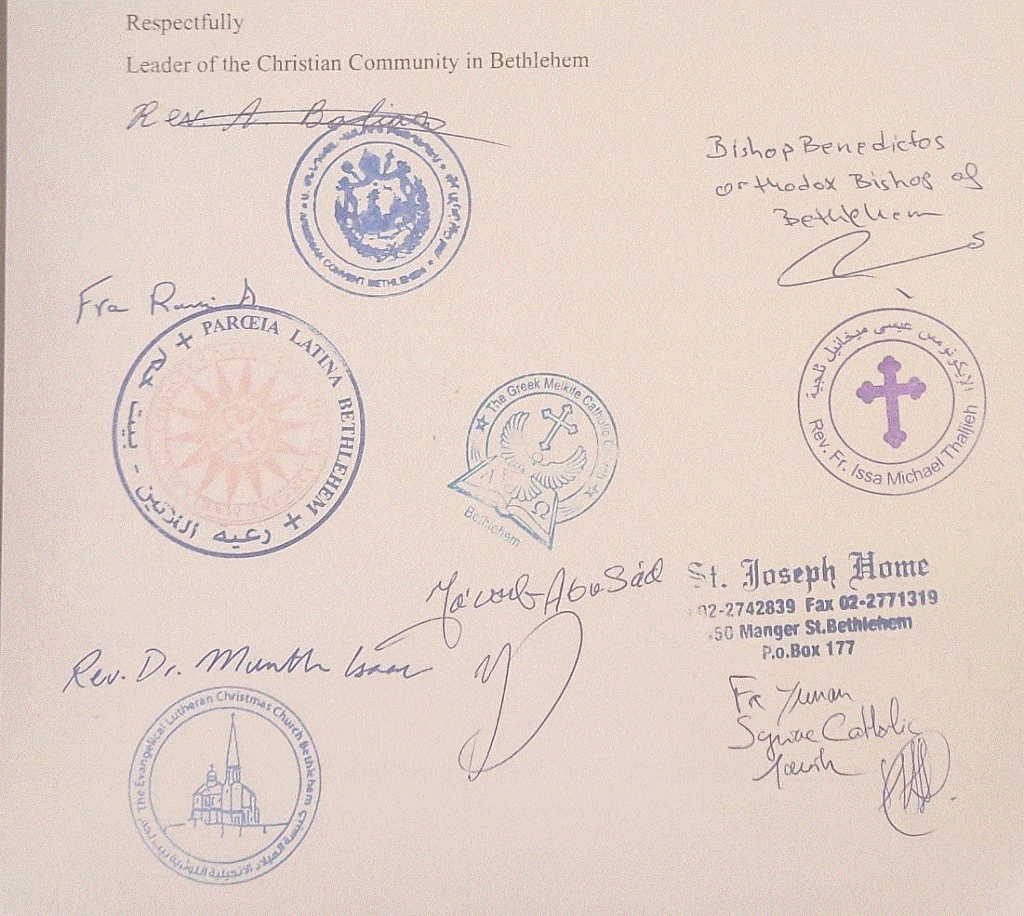 Respectfully
Leader of the Christian Community in Bethlehem
Rev. A. Balian
ARMENIAN CONVENT BETHLEHEM
Bishop Benedictos
orthodox Bishop of
Bethlehem
Fra Rami A
PARŒIA LATINA BETHLEHEM
رعية اللاتين - بيت لحم
The Greek Melkite Catholic
Bethlehem
Α Ω
الإيكونومس عيسى ميخائيل ثلجية
Rev. Fr. Issa Michael Thaljieh
Ya'coub Abu Sa'd
St. Joseph Home
02-2742839 Fax 02-2771319
50 Manger St.Bethlehem
P.o.Box 177
Rev. Dr. Munther Isaac
The Evangelical Lutheran Christmas Church Bethlehem
كنيسة الميلاد الانجيلية اللوثرية بيت لحم
Fr Yunan
Syriac Catholic